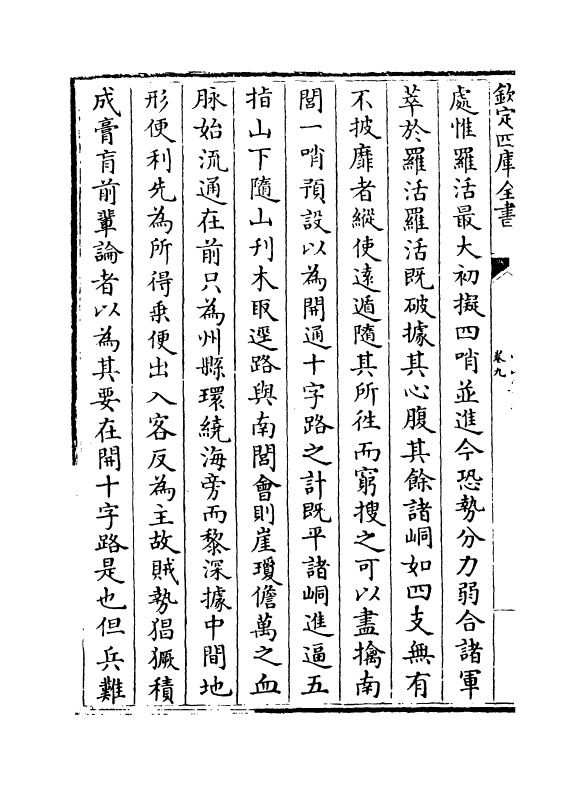 欽定四庫全書
卷九
處惟羅活最大初擬四哨並進今恐勢分力弱合諸軍
萃於羅活羅活既破據其心腹其餘諸峒如四支無有
不披靡者縱使遠遁隨其所徃而窮搜之可以盡擒南
閭一哨預設以為開通十字路之計既平諸峒進逼五
指山下隨山刋木取逕路與南閭會則崖瓊儋萬之血
脉始流通在前只為州縣環繞海旁而黎深據中間地
形便利先為所得乗便出入客反為主故賊勢猖獗積
成膏肓前輩論者以為其要在開十字路是也但兵難